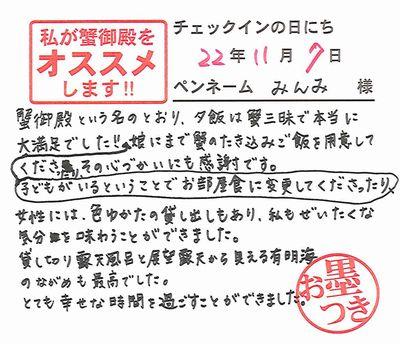 私が蟹御殿を
オススメ
します!!
チェックインの日にち
22年11月7日
ペンネーム みんみ 様
蟹御殿という名のとおり、夕飯は蟹三昧で本当に
大満足でした!! 娘にまで蟹のたき込みご飯を用意して
くださり、その心づかいにも感謝です。
子どもがいるということでお部屋食に変更してくださったり、
女性には、色ゆかたの貸し出しもあり、私もぜいたくな
気分を味わうことができました。
貸し切り露天風呂と展望露天から見える有明海
のながめも最高でした。
とても幸せな時間を過ごすことができました。
お墨
つき